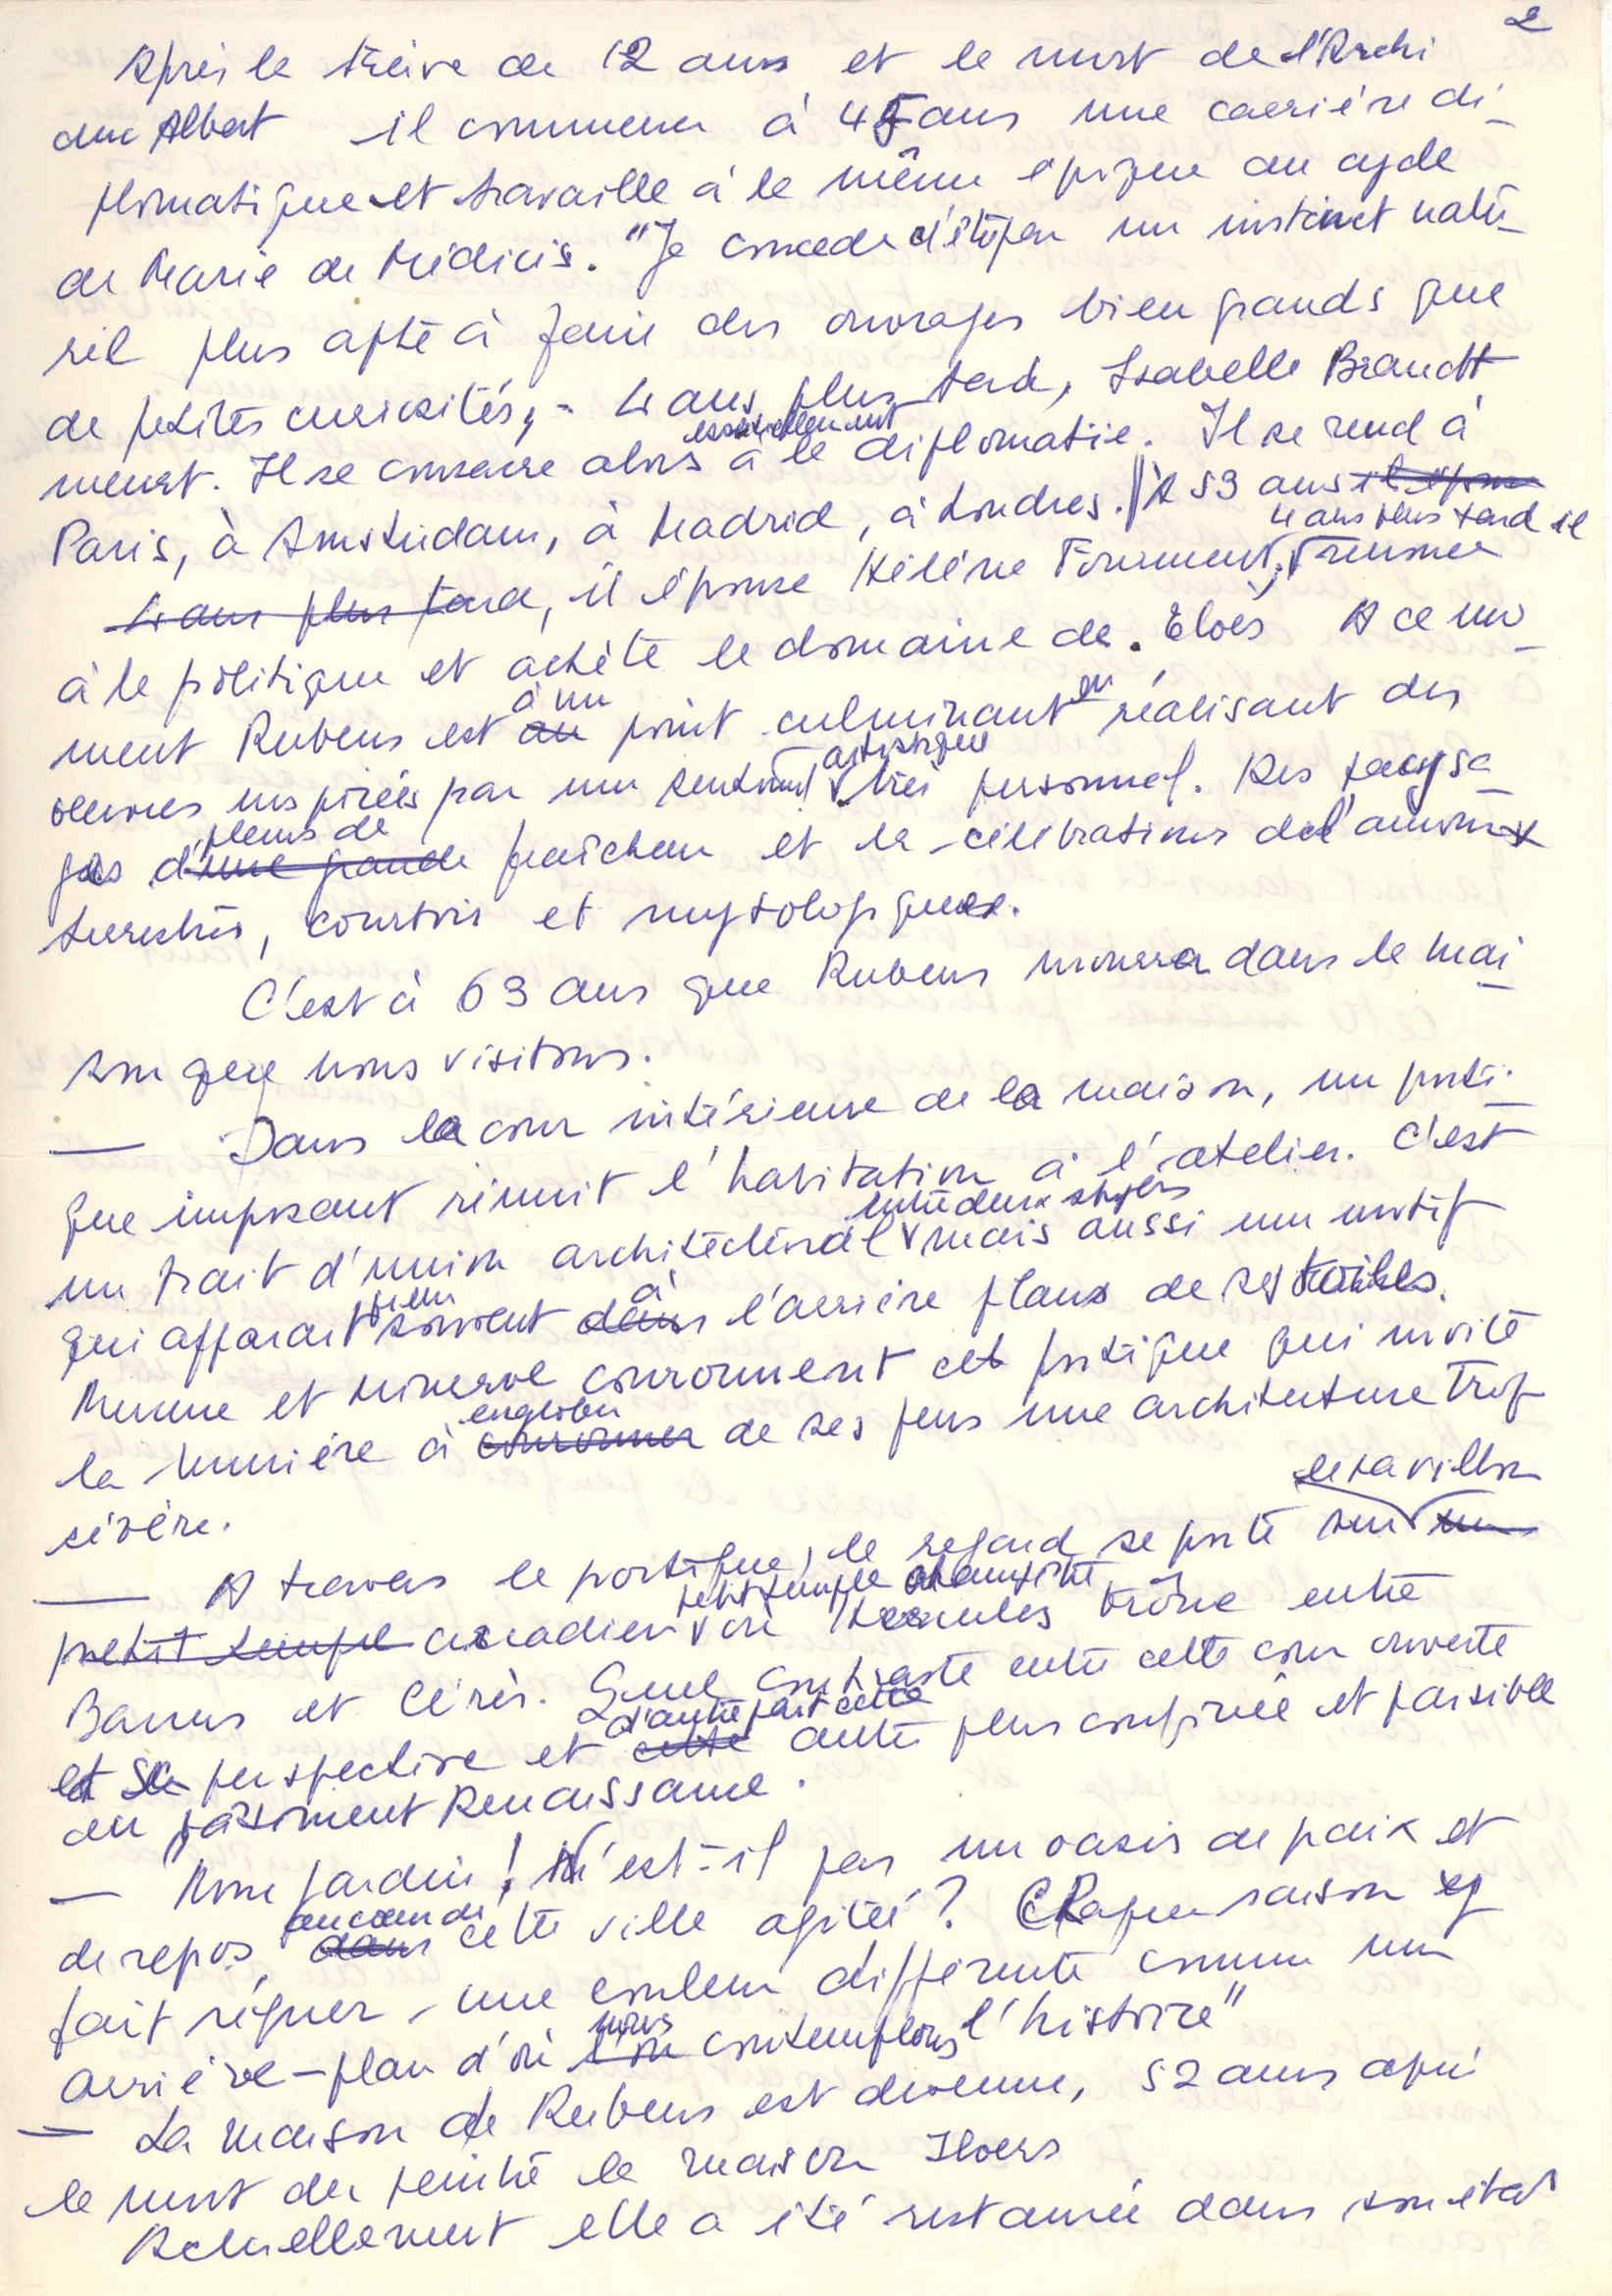 2
Après la trève de 12 ans et la mort de l'Archi
duc Albert il commence à 45 ans une carrière di_
plomatique et travaille à la même époque au cycle
de Marie de Médicis. "Je concede d'être par un instinct natu_
rel plus apte à faire des ouvrages bien grands que
de petites curiosités, - 4 ans plus tard, Isabelle Brandt
essentiellement
meurt. Il se consacre alors à la diplomatie. Il se rend à
Paris, à Amsterdam, à Madrid, à Londres. // A 53 ans il épouse
4 ans plus tard il
4 ans plus tard, il épouse Hélène Fourment, renonce
à la politique et achète le domaine de . Eloës A ce mo_
à un en
ment Rubens est au point culminant réalisant des
artistique
oeuvres inspirées par un sentiment très personnel. Des paysa_
pleins de
ges d'une grande fraîcheur et la célébrations de l'amour
terrestres, courtois et mytologiques.
C'est à 63 ans que Rubens mourra dans la mai_
son que nous visitons.
— Dans la cour intérieure de la maison, un porti_
que imposant réunit l'habitation à l'atelier. C'est
entre deux styles
un trait d'union architectural mais aussi un motif
bien à
qui apparait souvent dans l'arrière plans de ses toiles.
Mercure et Minerve couronnent cet portique qui invite
englober
la lumière à couronner de ses feux une architecture trop
sévère.
le pavillon
— A travers le portique, le regard se porte sur un
petit temple
petit temple arcadien où Hercules trône entre
Bacchus et Cérès. Quel contraste entre cette cour ouverte
d'autre part cette
et sa perspective et cette autre plus confinée et paisible
du bâtiment Renaissance.
— Mon jardin! N'est-il pas un oasis de paix et
au coeur de
de repos, dans cette ville agitée? Chaque saison y
fait régner une couleur différente comme un
nous
arrière-plan d'où l'on contemplons l'histoire"
— La maison de Rubens est devenue, 52 ans après
la mort du peintre la maison
Actuellement elle a été restaurée dans son état